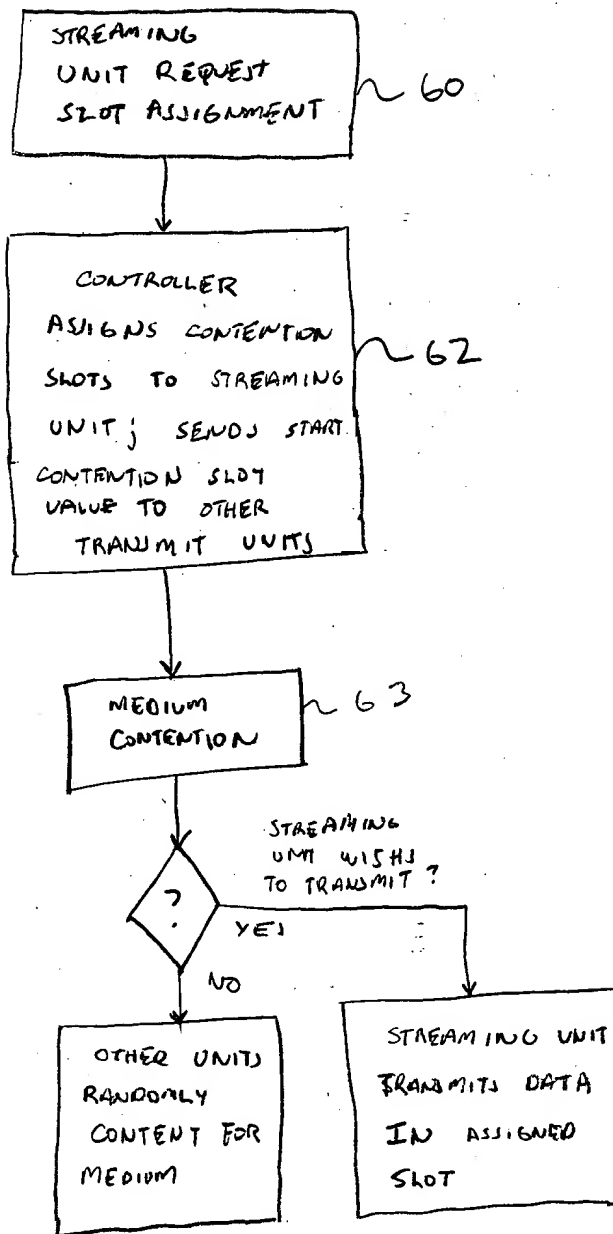 STREAMING
UNIT REQUEST
SLOT ASSIGNMENT
60
CONTROLLER
ASSIGNS CONTENTION
SLOTS TO STREAMING
UNIT; SENDS START
CONTENTION SLOT
VALUE TO OTHER
TRANSMIT UNITS
62
MEDIUM
CONTENTION
63
STREAMING
UNIT WISHS
TO TRANSMIT?
?
YES
NO
OTHER UNITS
RANDOMLY
CONTENT FOR
MEDIUM
STREAMING UNIT
TRANSMITS DATA
IN ASSIGNED
SLOT